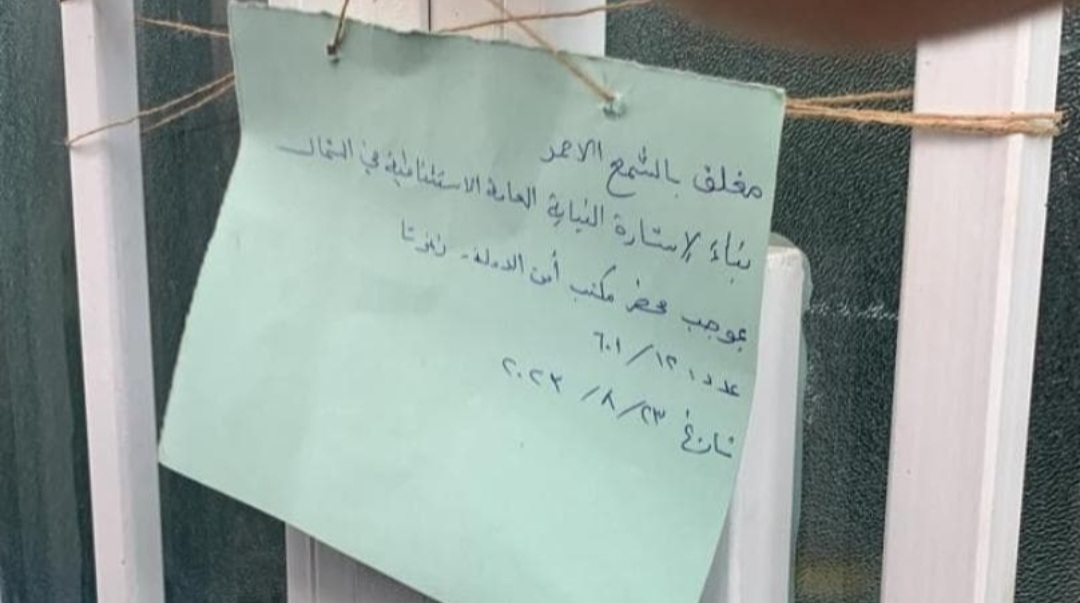 مغلق بالشمع الاحمر
بناءً لإستارة النيابة العامة الاستئنافية في الشمال
بموجب محضر مكتب أمن الدولة - زغرتا
عدد ٦٠١/١٢
تاريخ ٢٠٢٣/٨/٢٣